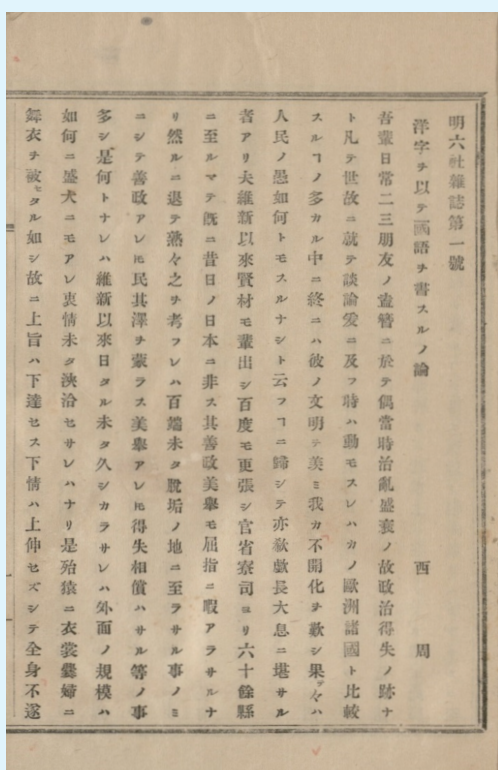 明六社雜誌第一號
洋字ヲ以テ國語ヲ書スルノ論 西 周
吾輩日常二三朋友ノ盍簪ニ於テ偶當時治亂盛衰ノ故政治得失ノ跡ナ
ト凡テ世故ニ就テ談論爰ニ及フ時ハ動モスレハカノ歐洲諸國ト比較
スルヿノ多カル中ニ終ニハ彼ノ文明ヲ羡ミ我カ不開化ヲ歎シ果々ハ
人民ノ愚如何トモスルナシト云フヿニ歸シテ亦欷歔長大息ニ堪サル
者アリ夫維新以來賢材モ輩出シ百度モ更張シ官省寮司ヨリ六十餘縣
ニ至ルマテ既ニ昔日ノ日本ニ非ス其善政美擧モ屈指ニ暇アラサルナ
リ然ルニ退テ熟々之ヲ考フレハ百端未タ脫垢ノ地ニ至ラサル事ノミ
ニシテ善政アレ𪜈民其澤ヲ蒙ラス美擧アレ𪜈得失相償ハサル等ノ事
多シ是何トナレハ維新以來日タル未タ久シカラサレハ外面ノ規模ハ
如何ニ盛大ニモアレ衷情未タ浹洽セサレハナリ是殆猿ニ衣裳爨婦ニ
舞衣ヲ被セタル如シ故ニ上旨ハ下達セス下情ハ上伸セズシテ全身不遂